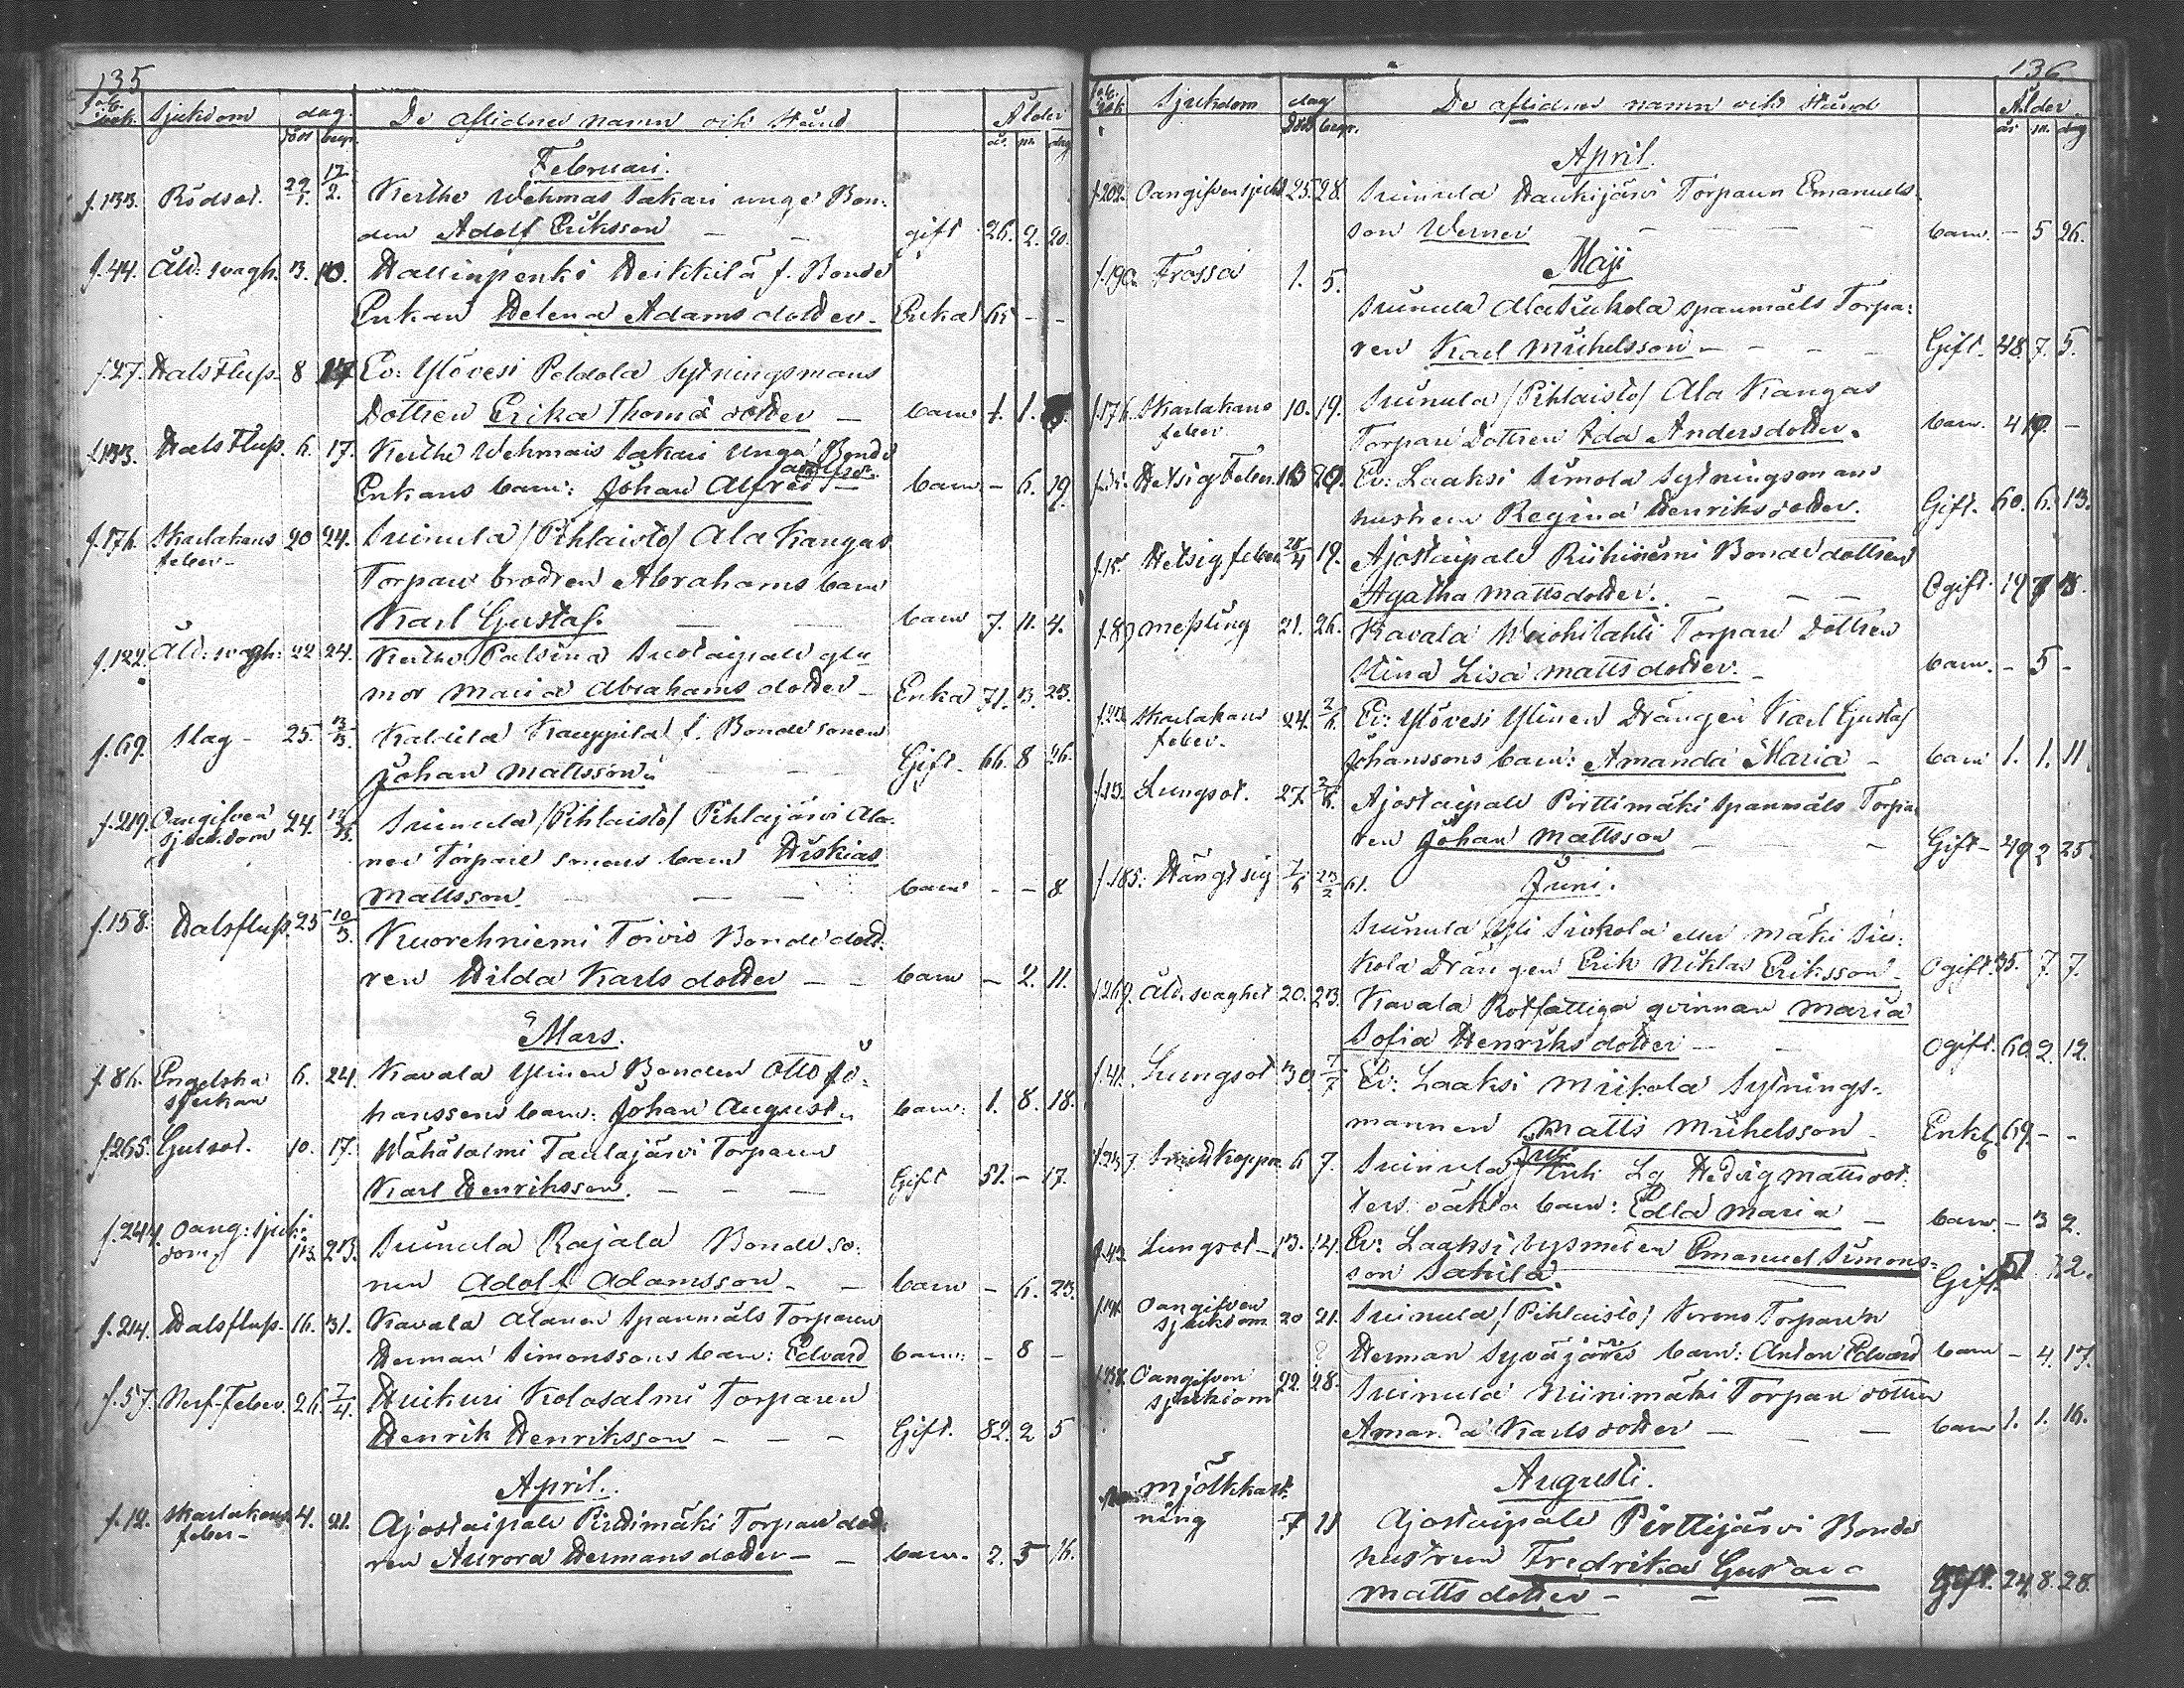 135
Sjukdom dag. De aflidnes namn och stånd Ålder
död begr. år. m. dag
Februari.
f.133. Rödsot. 22/1. 17/2. Keithe Wehmas Sakari unge Bon-
den Adolf Eriksson — — gift 26. 2. 20.
f.44. Åld: svagh. 3. 10. Hallinpenki Heikkilä f. Bonde
Enkan Helena Adams dotter — Enka 65 - -
f.27. Halsfluss. 8 17 Ev: Ylövesi Peldola Sytningsmans
Dottren Erika Thomä dotter — barn 1. 1.
f.133. Halsfluss. 6. 17. Keithe Wehmais Sakari unga Bonde
Adolfss.
Enkans barn: Johan Alfred — barn - 6. 19.
f.176. Skarlakans 20 24. Suinula /Pihlaisto/ Ala Kangas
feber-
Torpare brodren Abrahams barn
Karl Gustaf. — — barn 7. 11. 4.
f.122. Åld: svagh: 22 24. Keithe Palsina Suotaipale gla
mor Maria Abrahams dotter — Enka 71. 3. 23.
f.69. Slag - 25. 3/3. Kaltila Kauppila f. Bonde sonen
Johan Mattsson — — Gift. 66. 8 26.
f.219. Oangifven 24. Suinula /Pihlaisto/ Pihlajärvi Ala-
sjukdom
nen Torpare sonens barn Hiskias
Mattsson. — — barn - - 8.
f.158. Halsfluss. 25 10/3. Kuorehniemi Toivio Bonde dott-
ren Hilda Karls dotter — — barn - 2. 11.
Mars.
f.86. Engelska 6. 24. Kavala Ylinen Bonden Otto Jo-
sjukan
hanssens barn: Johan August. barn: 1. 8. 18.
f.265. Gulsot. 10. 17. Wähäsalmi Taulajärvi Torparen
Karl Henriksson. — — — Gift 51. - 17.
f.244. Oang: sjuk- 13 23. Suinula Rajala Bonde so-
dom,
nen Adolf Adamsson — — barn - 6. 23.
f.214. Halsfluss. 16. 31. Kavala Alanen Spanmåls Torparen
Herman Simonssons barn: Edvard barn: - 8 -
f.57. Nerf-Feber. 26 7/4. Huikuri Kolasalmi Torparen
Henrik Henriksson — — — Gift. 82. 2 5
April.
f.12. Skarlakans 4. 21. Ajostaipale Pirttimäki Torpare dott-
feber-
ren Aurora Hermans dotter — — barn. 2. 5 16.
136
Sjukdom dag De aflidnes namn och Stånd Ålder
död begr. år m. dag
April.
f.202. Oangifven sjukd 25. 28. Suinula Haukijärvi Torparn Emanuels-
son Werner — — — barn. - 5 26.
Maji
f.190. Frossa 1. 5.
Suinula Ala Siukola spanmåls Torpa-
ren Karl Michelsson — — — Gift. 48. 7. 5.
f.176. Skarlakans 10. 19. Suinula /Pihlaisto/ Ala Kangas
feber
Torpare Dottren Ida Andersdotter. barn. 4 -
Hetsig Feber. 13 29. Ev: Laaksi Simola Sytningsmans
hustrun Regina Henriks dotter. Gift. 60. 6. 13.
Hetsig feber 28/4 19. Ajostaipale Riihiniemi Bonde dottren
Agatha Mattsdotter. — — — Ogift. 19 7
f.89 Messling 21. 26. Kavala Wuohilahti Torpare Dottren
Stina Lisa Matts dotter. — barn. - 5 -
Skarlakans 24. 2/6. Ev: Ylövesi Ylinen Drängen Karl Gustaf
feber.
Johanssons barn: Amanda Maria — barn 1. 1. 11
f.13. Lungsot. 27. 2/6. Ajostaipale Pirttimäki spanmåls Torpa-
ren Johan Mattsson — — — Gift - 49 2 25.
f.185. Hängt sig 7/6 23/2 61. Juni.
Suinula Yli Siukola eller Mäki Siu-
kola Drängen Erik Niklas Eriksson. Ogift. 35. 7. 7.
f.269. Åld. svaghet 20. 23. Kavala Rotfattiga qvinnan Maria
Sofia Henriks dotter — — Ogift. 60. 2. 12.
f.41. Lungsot 30. 7/7 Ev: Laaksi Mickola Sytnings-
mannen Matts Michelsson — Enkl. 69. - -
Juli
Smittkoppor 6 7. Suinula Lg Hedvig Mattsdot-
ters oäkta barn: Edla Maria — barn. - 3 2.
f.43. Lungsot - 13. 14. Ev: Laaksi bysmeden Emanuel Simons-
son Sahila. Gift. 51 2.
Oangifven 20 21. Suinula /Pihlaisto/ Torparn
sjukdom
Herman Syväjärvis barn: Anton Edvard barn - 4. 17.
Oangifven 22. 28. Suinula Niinimäki Torpare dottren
sjukdom
Amanda Karls dotter — — — barn 1. 1. 16.
Augusti.
Mjölkkast- 7 11 Ajostaipale Pirttijärvi Bonde
ning
hustrun Fredrika Gustava
Matts dotter — — — Gift. 24. 8. 28.